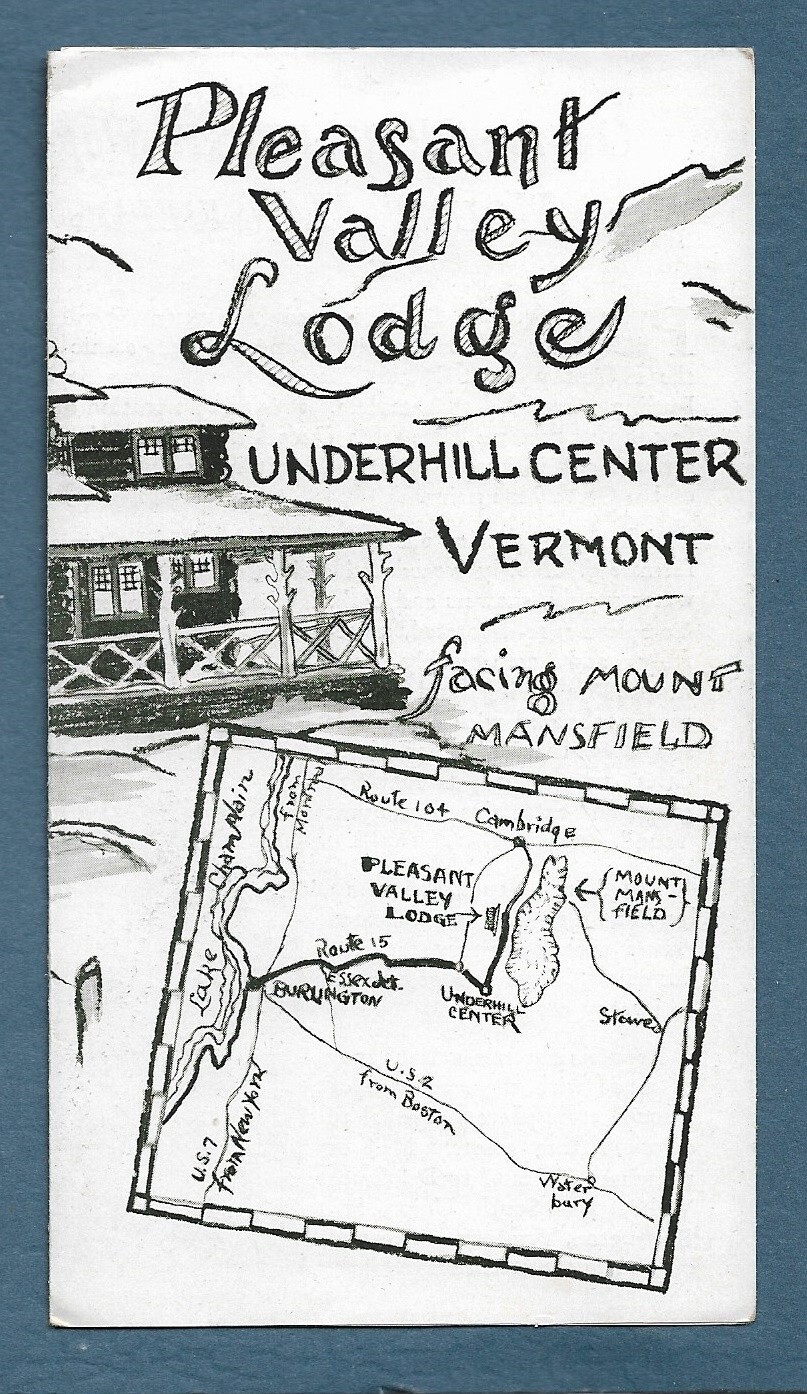 Pleasant
Valley
Lodge
UNDERHILL CENTER
VERMONT
facing MOUNT
MANSFIELD
Lake Champlain
from Montreal
Route 104
Cambridge
PLEASANT
VALLEY
LODGE
MOUNT
MANS-
FIELD
Route 15
Essex Jct.
BURLINGTON
UNDERHILL
CENTER
Stowe
U.S. 2
from Boston
U.S. 7
from New York
Water
bury